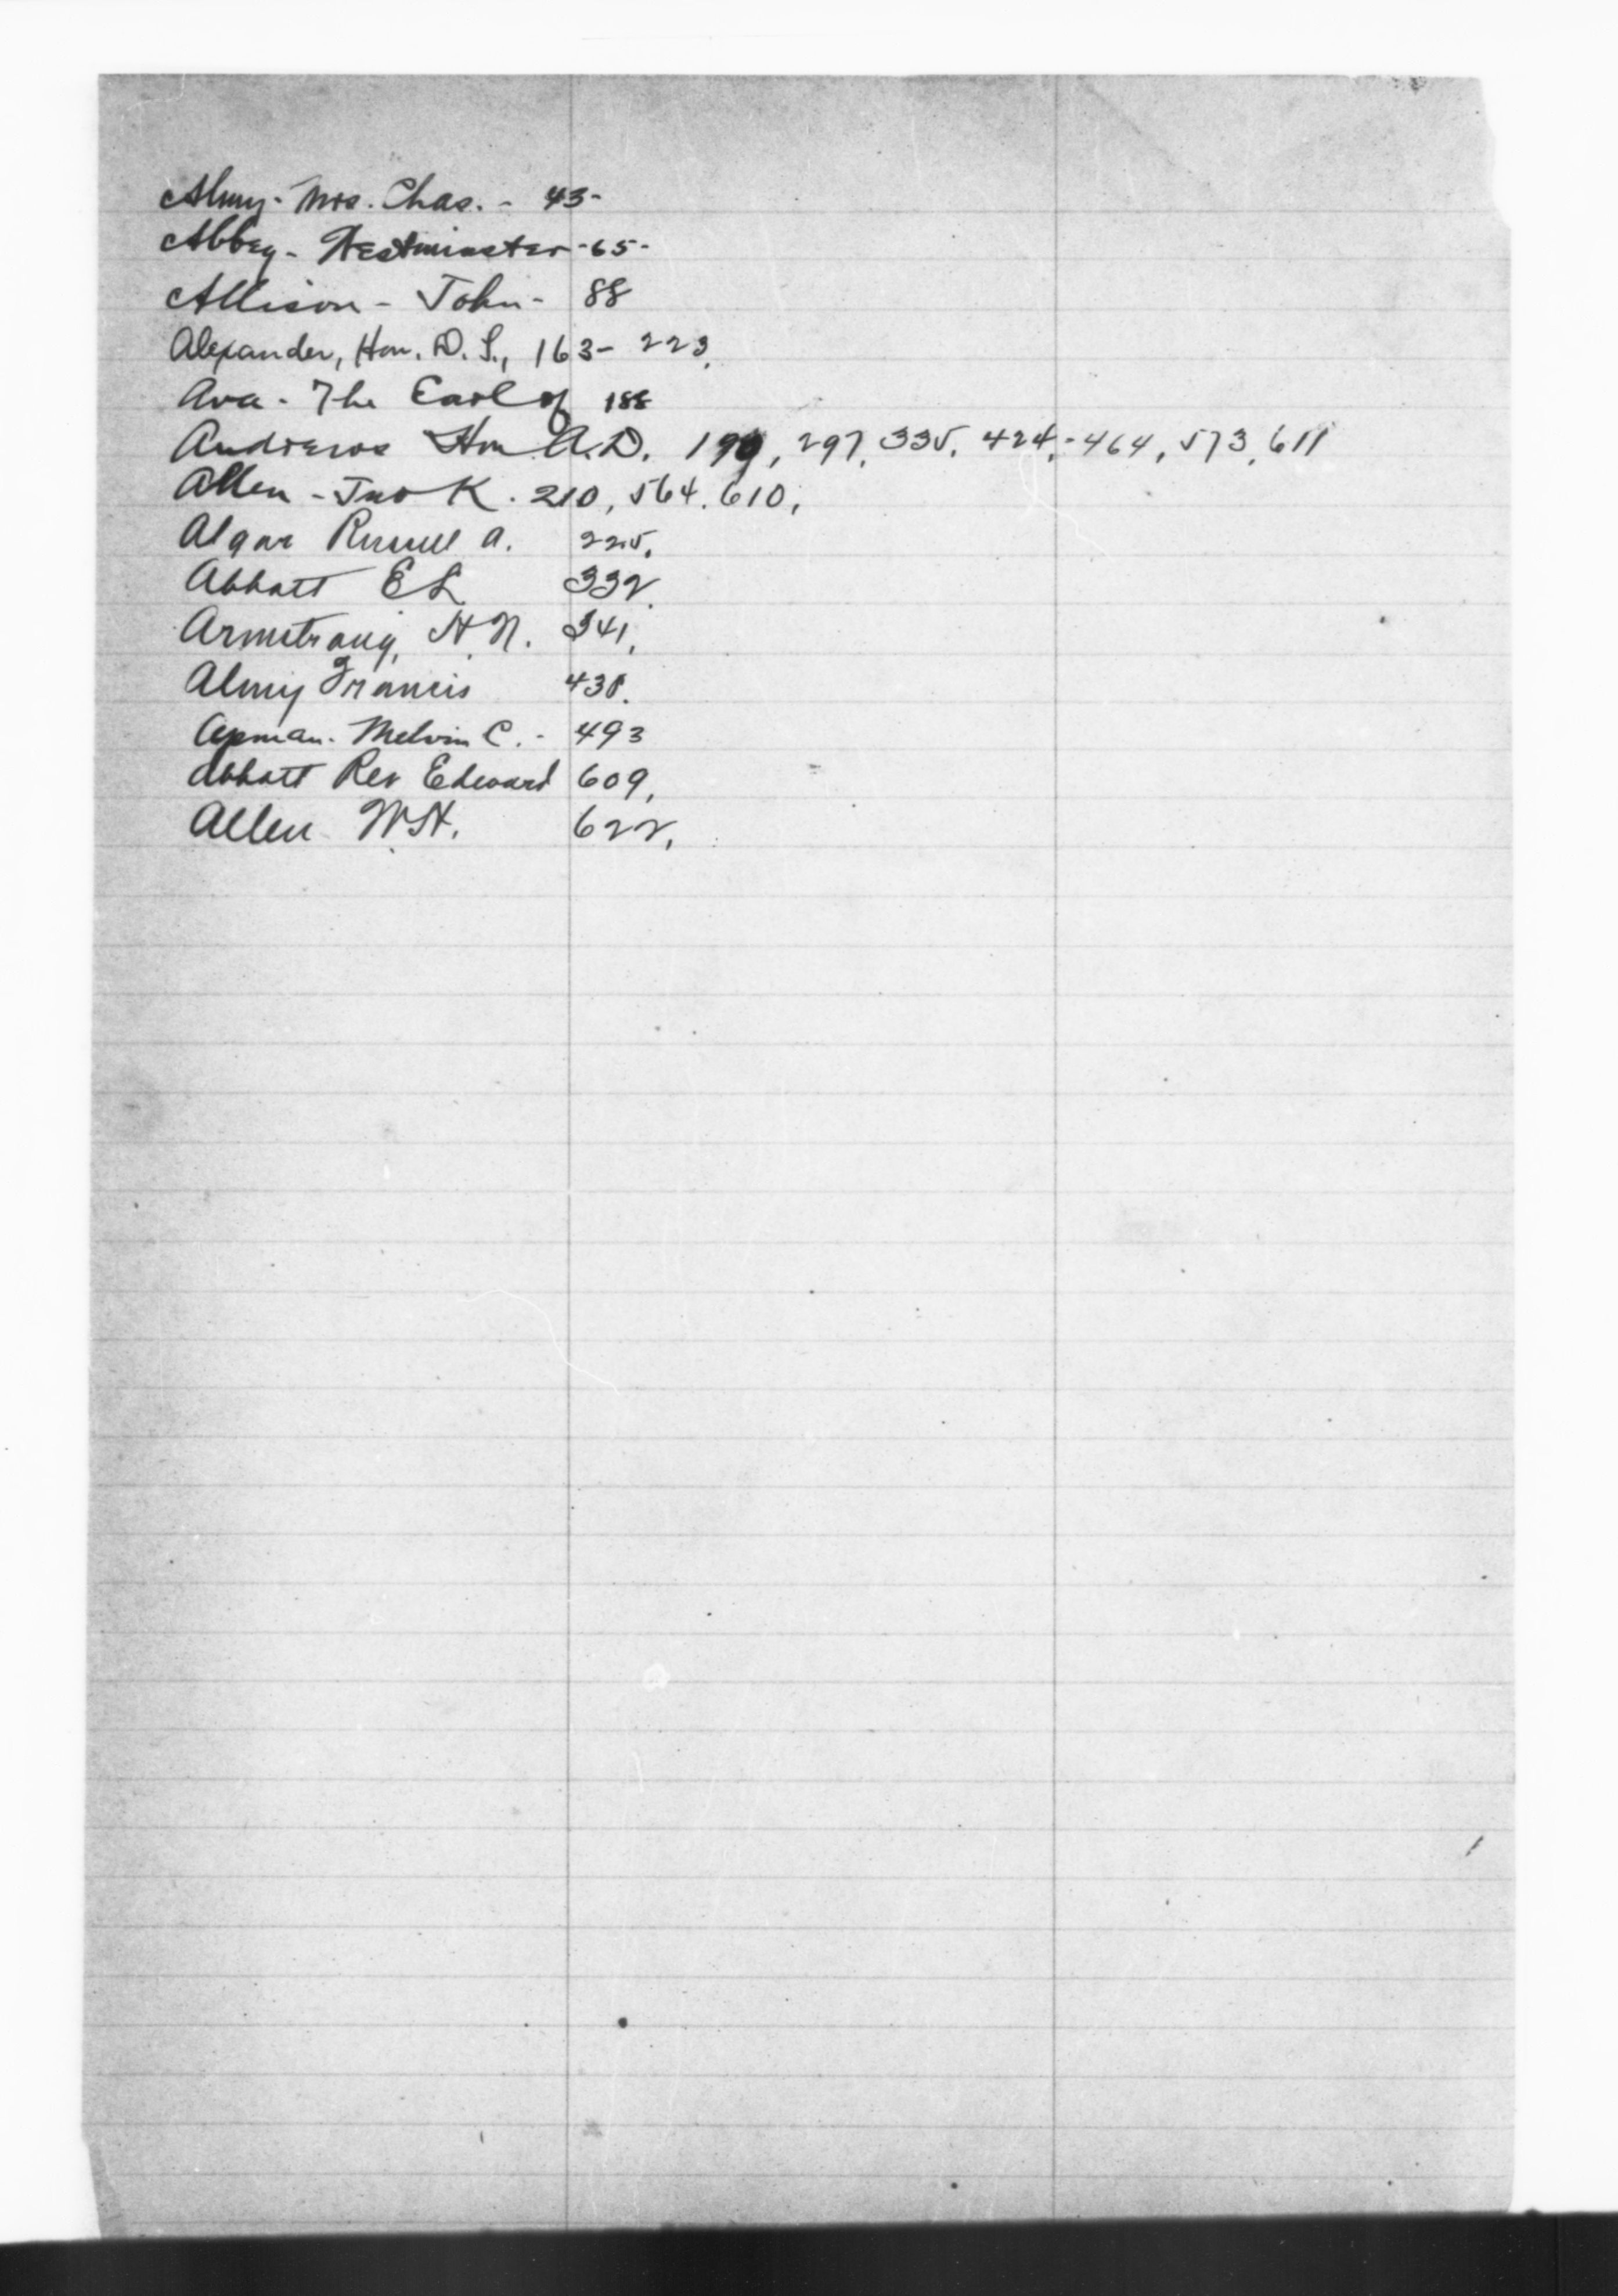 Almy - Mrs. Chas. - 43-
Abbey - Westminster - 65 -
Allison - John - 88
Alexander, Hon. D. S., 163 - 223.
Ava - The Earl of 188
Andrews Hon A. D. 297, 335, 424, - 464, 573, 611
Allen - Jno K. 210, 564. 610,
Algar Russell A. 225.
Abbott E L 332.
Armstrong, H. N. 341,
Almy Francis
Melvin C. - 493
Abbott Rev Edward 609,
Allen W. H. 622,